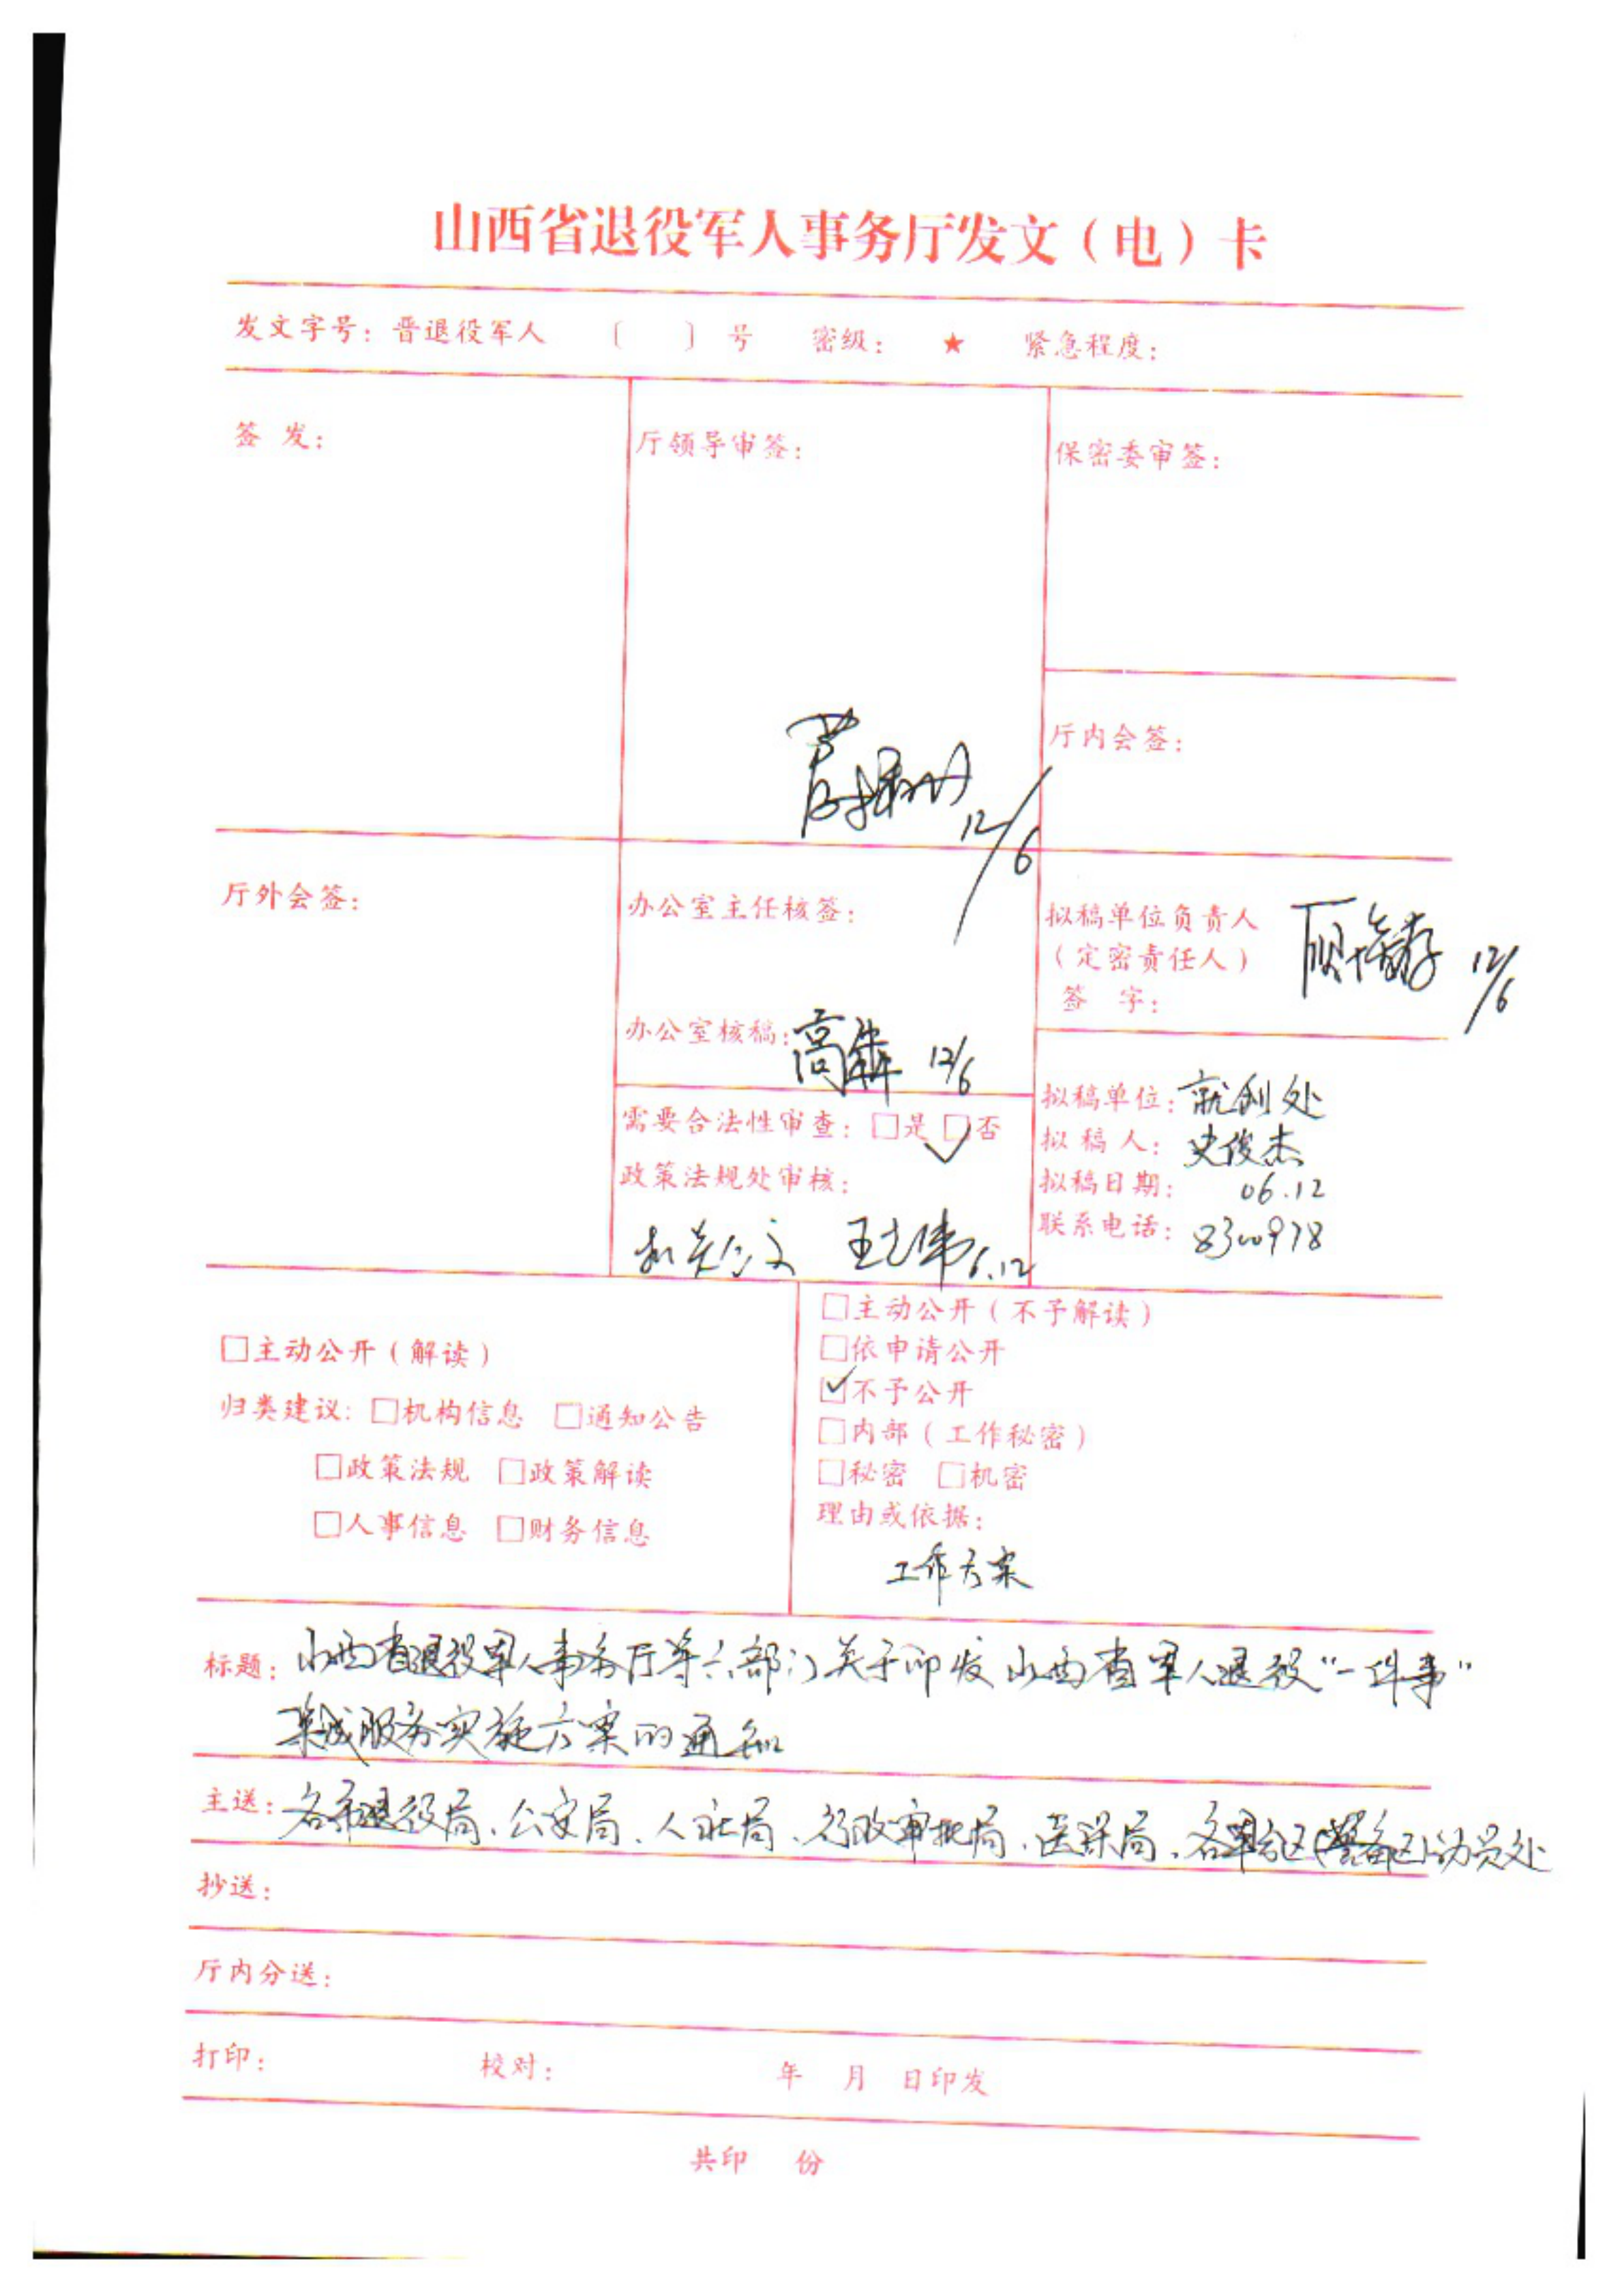 山西省退役军人事务厅发文（电）卡
发文字号：晋退役军人 〔 〕 号 密级： ★ 紧急程度：
签 发：
厅领导审签：
12/6
保密委审签：
厅内会签：
厅外会签：
办公室主任核签：
办公室核稿：高犇 12/6
需要合法性审查：□是 □否
政策法规处审核：
王志伟 6.12
拟稿单位负责人
（定密责任人）
签 字：
12/6
拟稿单位：就创处
拟 稿 人：史俊杰
拟稿日期： 06.12
联系电话：8300978
□主动公开（解读）
归类建议：□机构信息 □通知公告
□政策法规 □政策解读
□人事信息 □财务信息
□主动公开（不予解读）
□依申请公开
☑不予公开
□内部（工作秘密）
□秘密 □机密
理由或依据：
工作方案
标题：山西省退役军人事务厅等六部门关于印发山西省军人退役“一件事”
集成服务实施方案的通知
主送：各市退役局、公安局、人社局、行政审批局、医保局、各军分区（警备区）动员处
抄送：
厅内分送：
打印： 校对： 年 月 日印发
共印 份